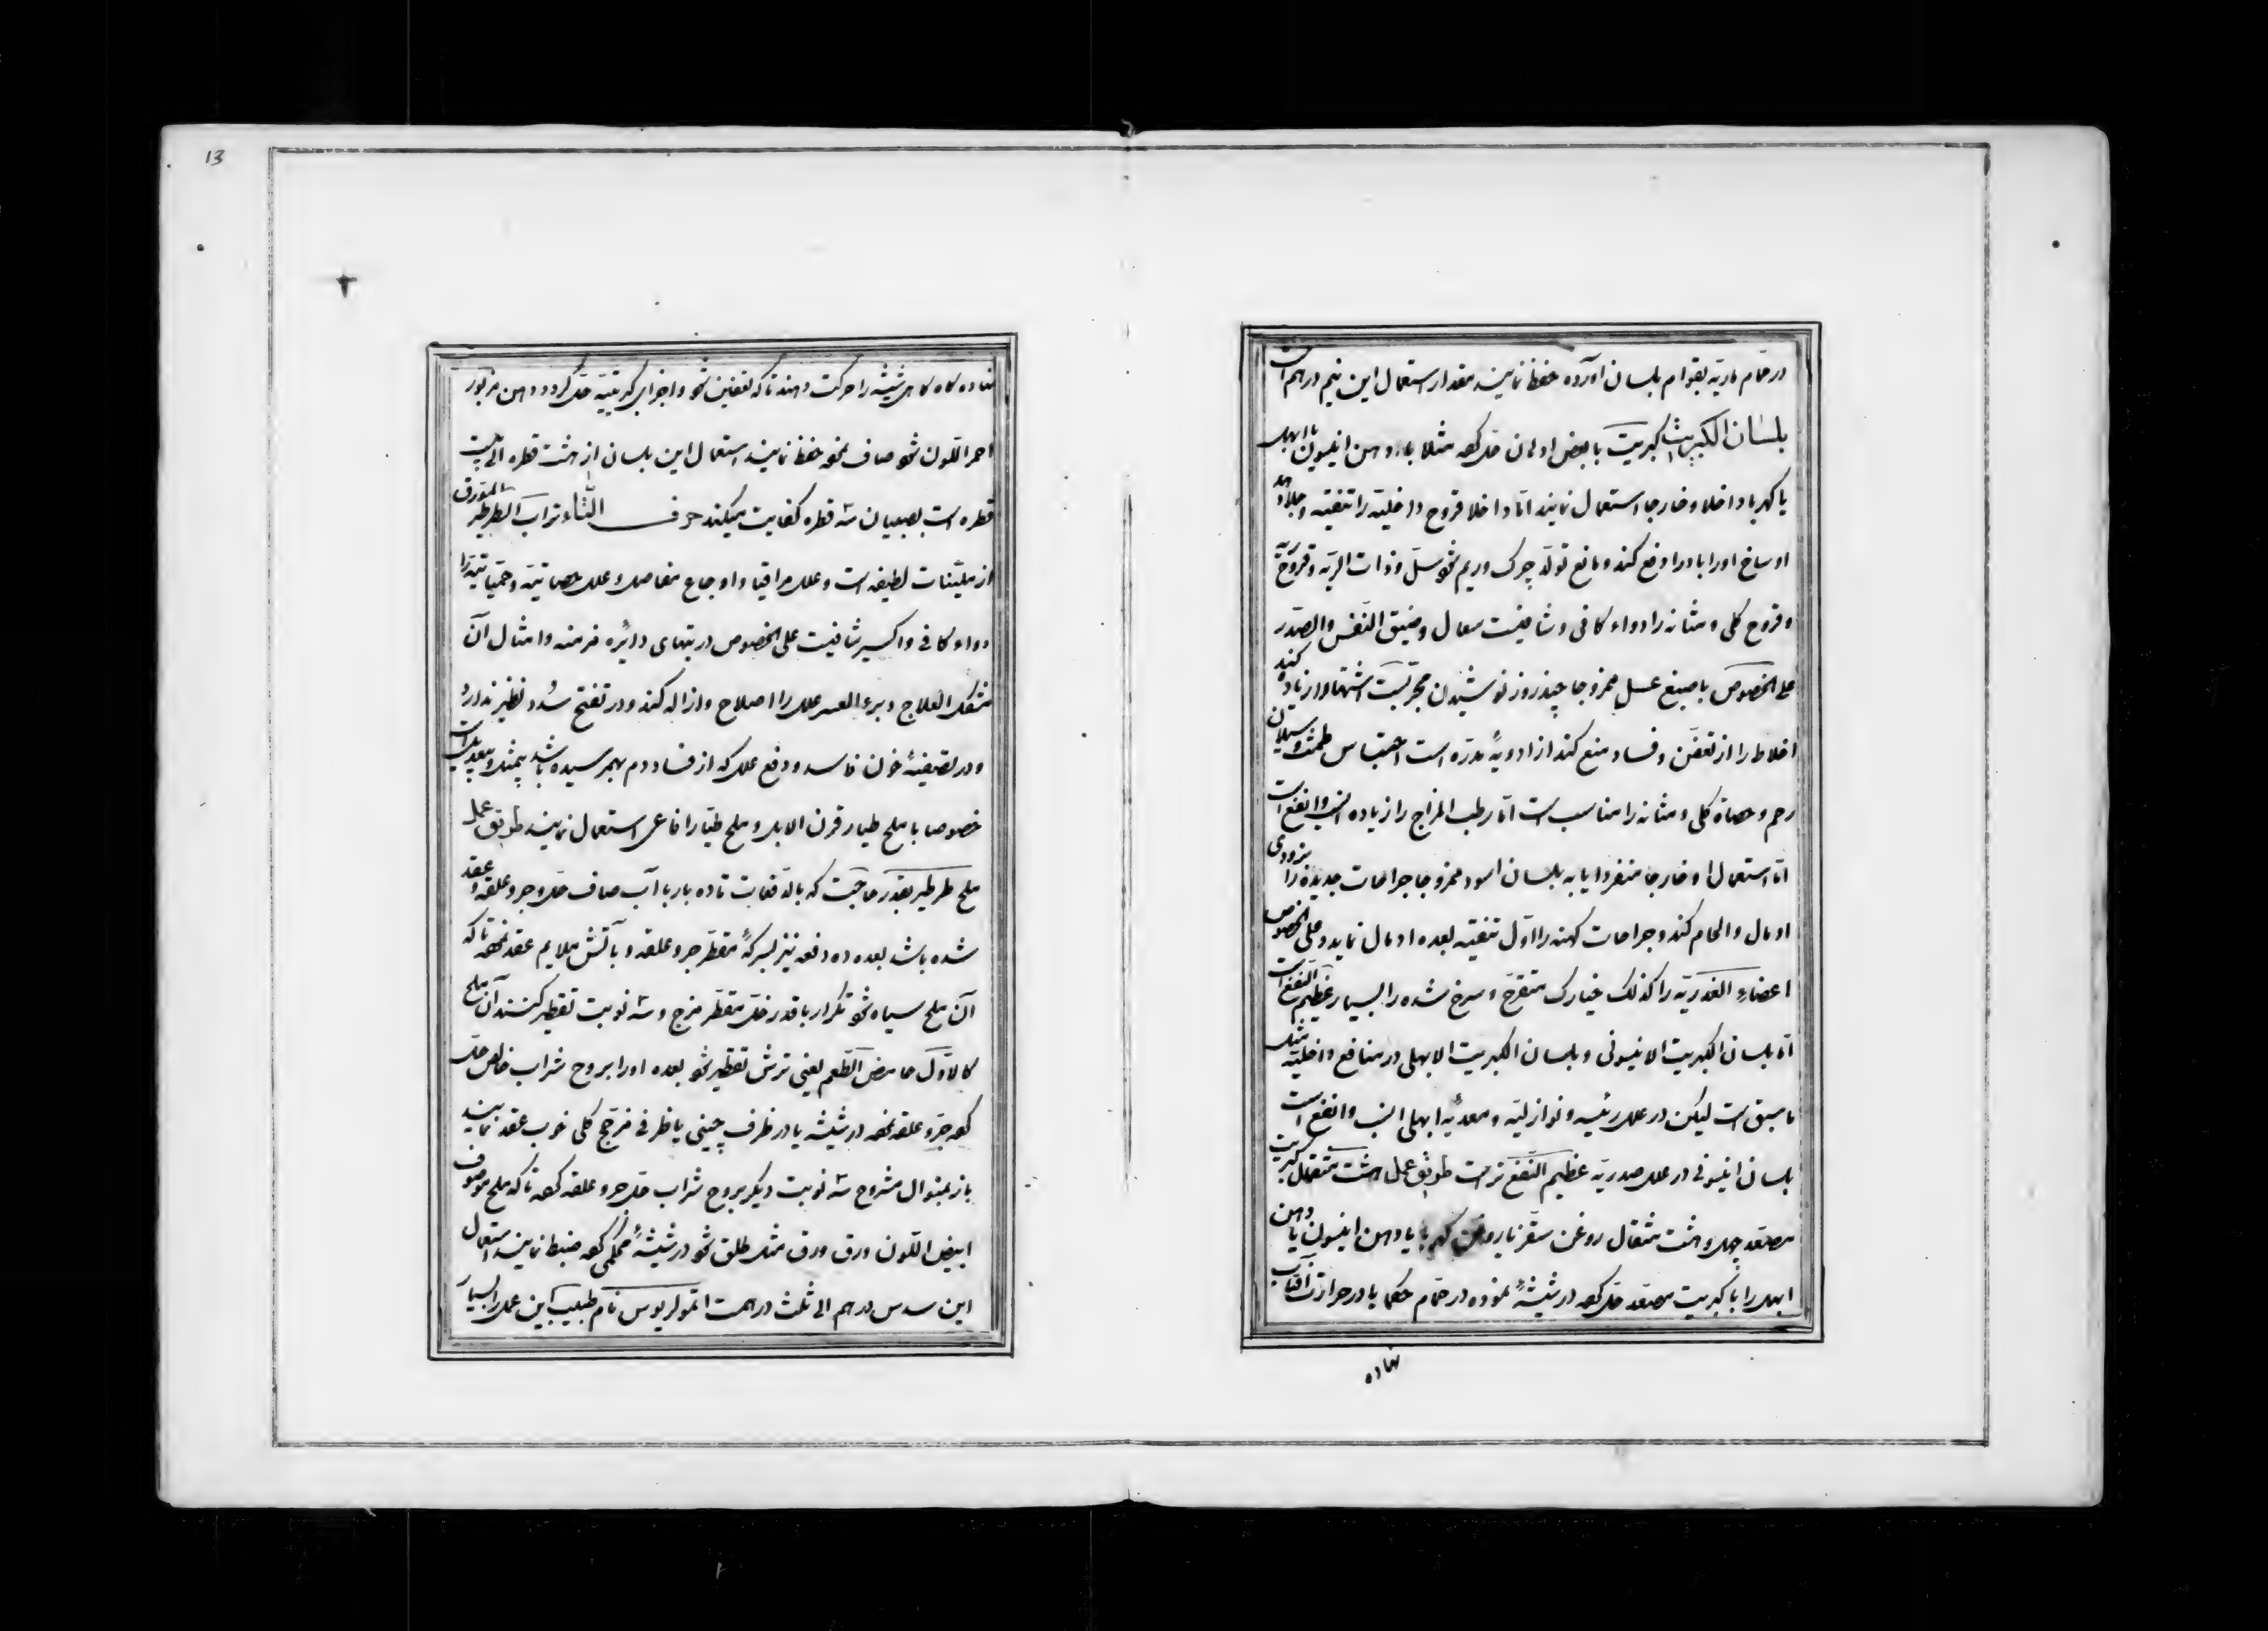 در حمام ماریه بقوام بلسان آورده حفظ نمایند مقدار استعمال این نیم درهم است
بلسان الکبریت کبریت با بعض ادهان حل کرده مثلا با دهن انیسون یا ابهل
یا کهربا داخلا و خارجا استعمال نمایند اما داخلا قروح داخلیه را تنقیه و جلا دهد
اوساخ اورا بادرار دفع کند و مانع تولد چرک و ریم شود سل و ذات الریه و قروح
و قروح کلی و مثانه را دواء کافی و شافیست سعال و ضیق النفس و الصدر
علی الخصوص با صبغ عسل ممزوجا چند روز نوشیدن مجربست اشتها را زیاده کند
اخلاط را از تعفن و فساد منع کند از ادویهٔ مدره است احتباس طمث و سیلان
رحم و حصاة کلی و مثانه را مناسب است اما رطب المزاج را زیاده انسب و انفع است
اما استعمال او خارجا منفردا یا به بلسان اسود ممزوجا جراحات جدیده را بزودی
ادمال و الحام کند و جراحات کهنه را اول تنقیه بعده ادمال نماید و علی الخصوص
اعضاء الغددیه را کذلک خیارک متقرح و سرخ شده را بسیار عظیم النفع است
اما بلسان الکبریت الانیسونی و بلسان الکبریت الابهلی در منافع داخلیه مثل
ما سبق است لیکن در علل رئیسه و نوازلیه و معدیه ابهلی انسب و انفع است
بلسان انیسونی در علل صدریه عظیم النفع تر است طریق عمل هشت مثقال کبریت
مصعد چهل و هشت مثقال روغن سقز یا روغن کهربا یا دهن انیسون یا دهن
ابهل را با کبریت مصعد حل کرده در شیشهٔ نموده در حمام حکما یا در حرارت آفتاب
نهاده
نهاده گاه گاهی شیشه را حرکت دهند تا که تعفین شود و اجزای کبریتیه حل گردد دهن مزبور
احمر اللون شود صاف نموده حفظ نمایند استعمال این بلسان از هشت قطره الی بیست
قطره است بصبیان سه قطره کفایت میکند حرف التاء تراب الطرطیر المورق
از ملینات لطیفه است و علل مراقیا و اوجاع مفاصل و علل حصاتیه و حمیاتیه را
دواء کافی و اکسیر شافیست علی الخصوص در تبهای دایره مزمنه و امثال آن
مشکل العلاج و برء العسر علل را اصلاح و ازاله کند و در تفتیح سدد نظیر ندارد
و در تصفیهٔ خون فاسد و دفع علل که از فساد دم بهمرسیده باشد بیمثل و بیعدیل است
خصوصا با ملح طیار قرن الایل و ملح طیار افاعی استعمال نمایند طریق عمل
ملح طرطیر بقدر حاجت که بالدفعات تا ده بار با آب صاف حل و جر و علقه و عقد
شده باشد بعده ده دفعه نیز بسرکهٔ مقطر جر و علقه و بآتش ملایم عقد نموده تا که
آن ملح سیاه شود تکرار با قدر خل مقطر مزج و سه نوبت تقطیر کنند آن ملح
کالاول حامض الطعم یعنی ترش تقطیر شود بعده اورا بروح شراب خالص حل
کرده جر و علقه نموده در شیشه یا در ظرف چینی یا ظرفی مزجج کلی خوب عقد نمایند
باز بمنوال مشروح سه نوبت دیگر بروح شراب حل جر و علقه کرده تا که ملح موصوف
ابیض اللون ورق ورق مثل طلق شود در شیشهٔ محکمی کرده ضبط نمایند استعمال
این سدس درهم الی ثلث درهمست نام طبیب این عمل را بسیار
13